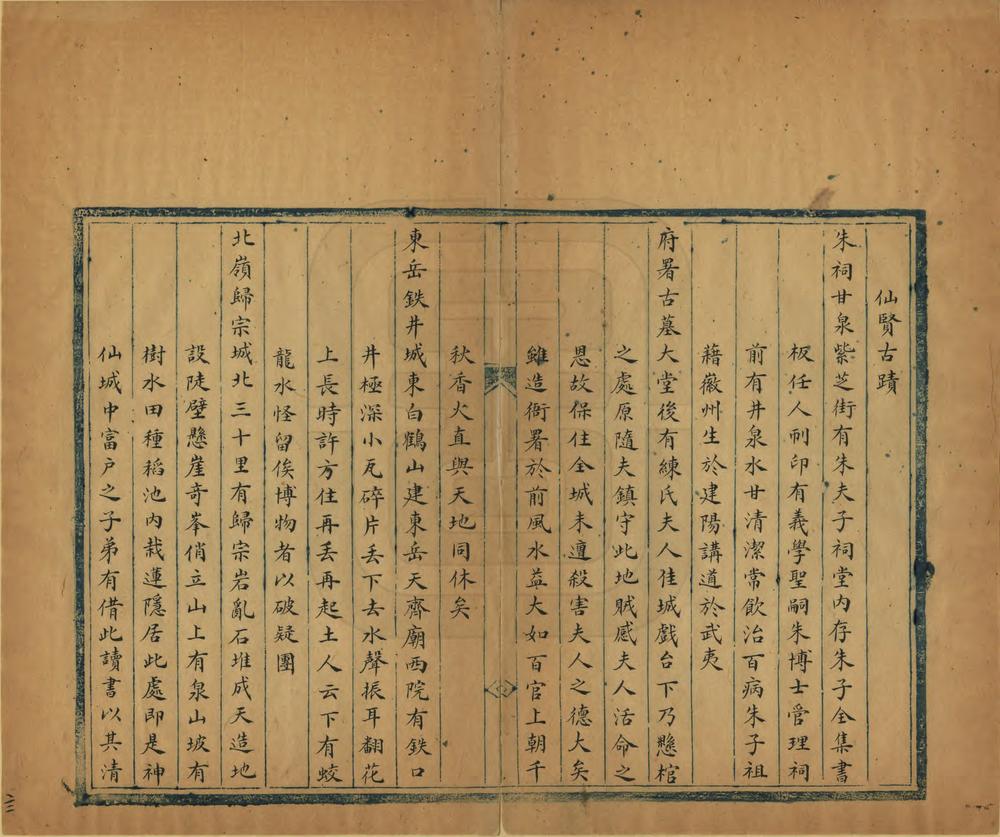 仙賢古蹟
朱祠甘泉紫芝街有朱夫子祠堂內存朱子全集書
板任人刷印有義學聖嗣朱博士管理祠
前有井泉水甘清潔常飲治百病朱子祖
藉徽州生於建陽講道於武夷
府署古墓大堂後有練氏夫人佳城戲台下乃懸棺
之處原隨夫鎮守此地賊感夫人活命之
恩故保住全城未遭殺害夫人之德大矣
雖造衙署於前風水益大如百官上朝千
秋香火直與天地同休矣
東岳鉄井城東白鶴山建東岳天齊廟西院有鉄口
井極深小瓦碎片丢下去水聲振耳翻花
上長時許方住再丢再起土人云下有蛟
龍水怪留俟博物者以破疑團
北嶺歸宗城北三十里有歸宗岩亂石堆成天造地
設陡壁懸崖奇峯俏立山上有泉山坡有
樹水田種稻池內栽蓮隱居此處即是神
仙城中富戶之子弟有借此讀書以其清